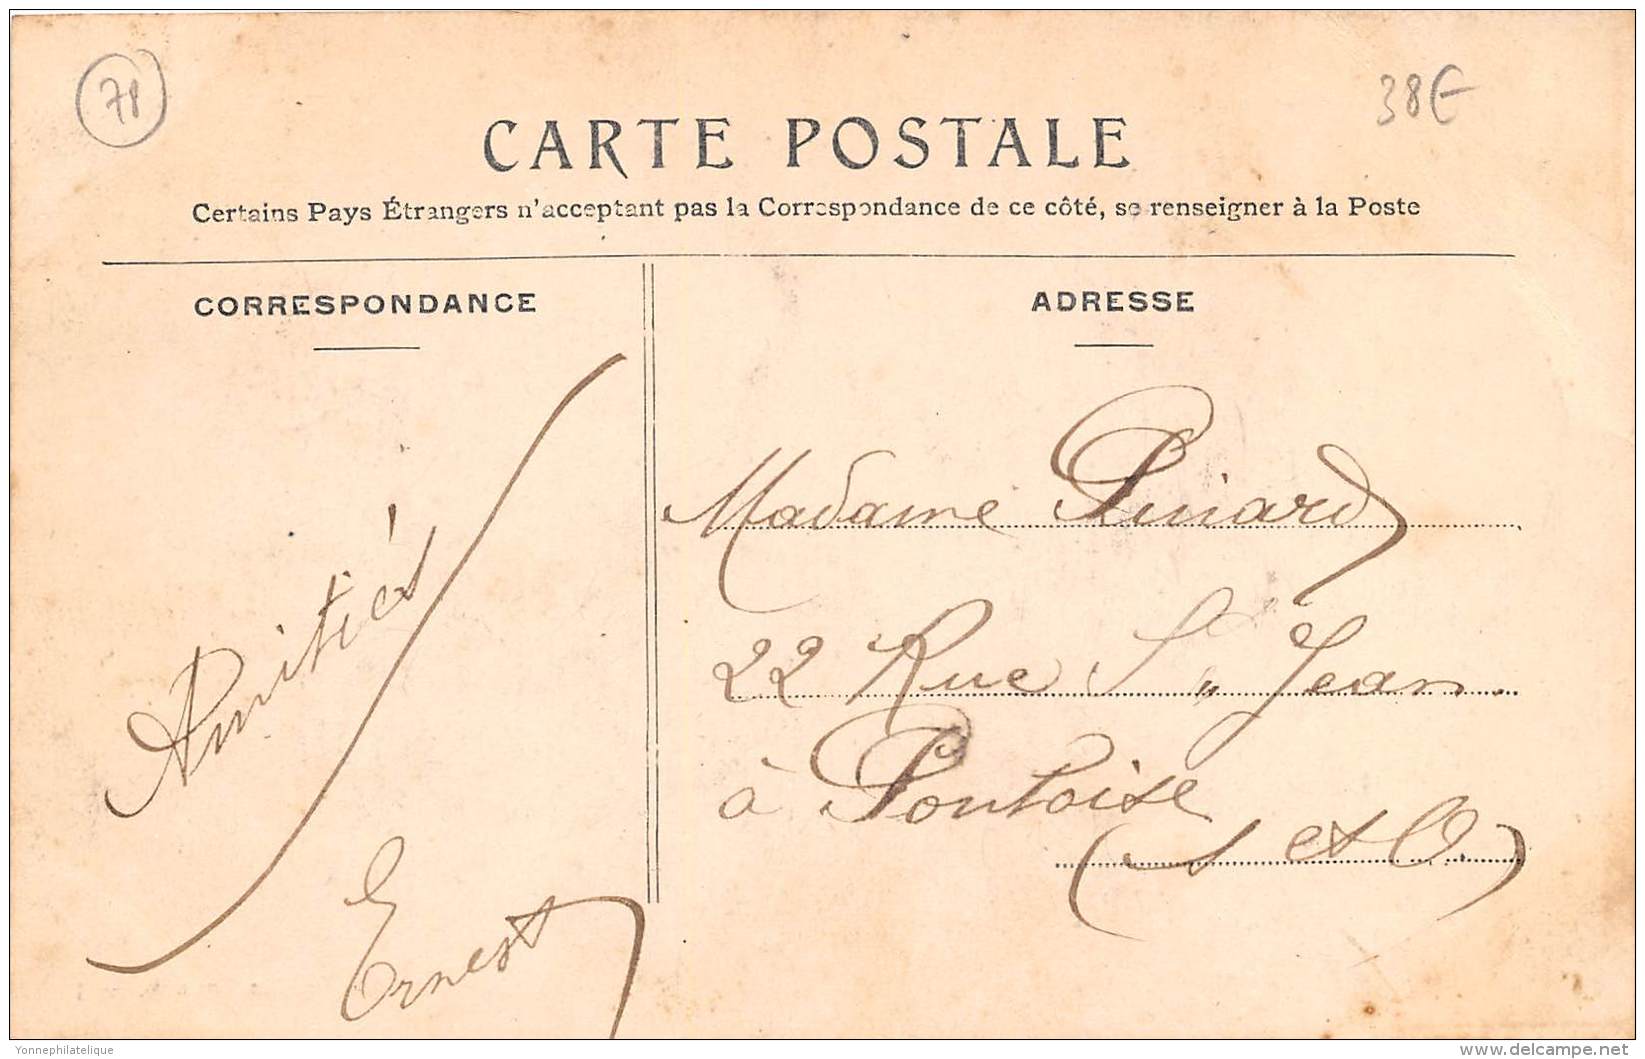 78
38€
CARTE POSTALE
Certains Pays Étrangers n'acceptant pas la Correspondance de ce côté, se renseigner à la Poste
CORRESPONDANCE
ADRESSE
Amitiés
Ernest
Madame Piniard
22 Rue St Jean
à Pontoise
(S et O.)
Yonnephilatelique
delcampe.net